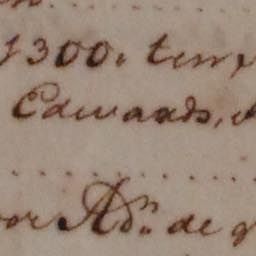 1300. temp
Edwards,
or Adn. de